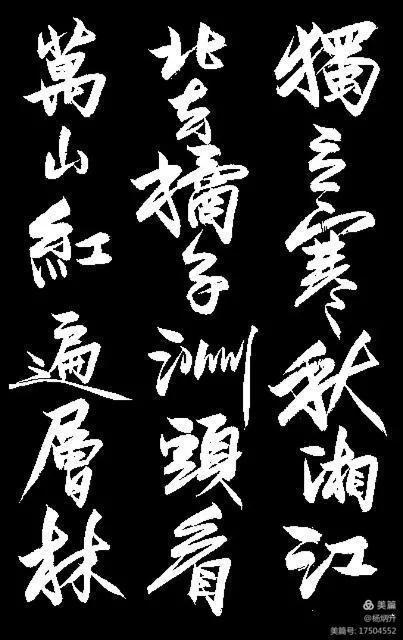 獨立寒秋湘江
北去橘子洲頭看
萬山紅遍層林
美篇
@杨炳
美篇号: 17504552